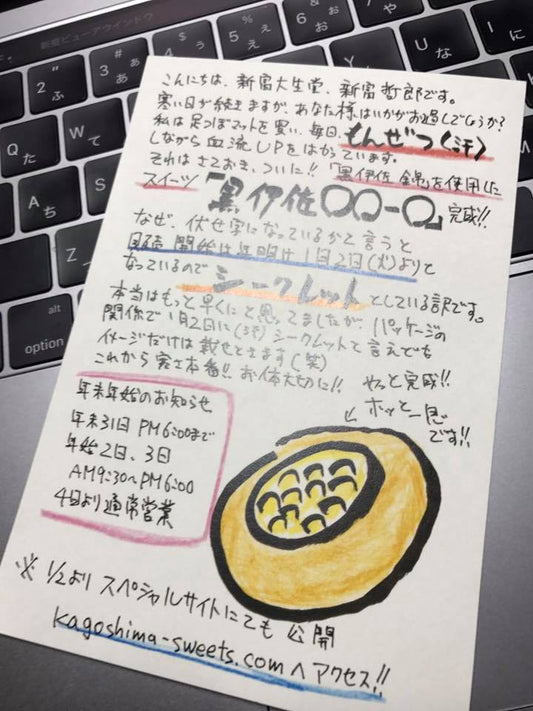 こんにちは、新富大生堂、新富哲郎です。
寒い日が続きますが、あなた様はいかがお過しでしょうか?
私は足つぼマットを買い、毎日、もんぜつ(汗)
しながら血流UPをはかっています。
それはさておき、ついに!!「黒伊佐錦」を使用した
スイーツ「黒伊佐〇〇-〇」完成!!
なぜ、伏せ字になっているかと言うと
販売開始は年明け1月2日(火)よりと
なっているので シークレット としている訳です。
本当はもっと早くにと思ってましたが、パッケージの
関係で1月2日に(汗)シークレットと言えでも
イメージだけは載せときます(笑)
これから寒さ本番!!お体大切に!!
やっと完成!!
ホッと一息
です!!
年末年始のお知らせ
年末31日 PM6:00まで
年始2日、3日
AM9:30~PM6:00
4日より通常営業
※1/2より スペシャルサイトにても 公開
kagoshima-sweets.comへアクセス!!
新規ビューアウインドウ
2
ふ
3
#
あ
ぁ
4
$
う
ぅ
5
%
え
ぇ
6
&
お
ぉ
7
Q
た
W
て
U
な
I
に
A
ち
S
と
Z
alt
option